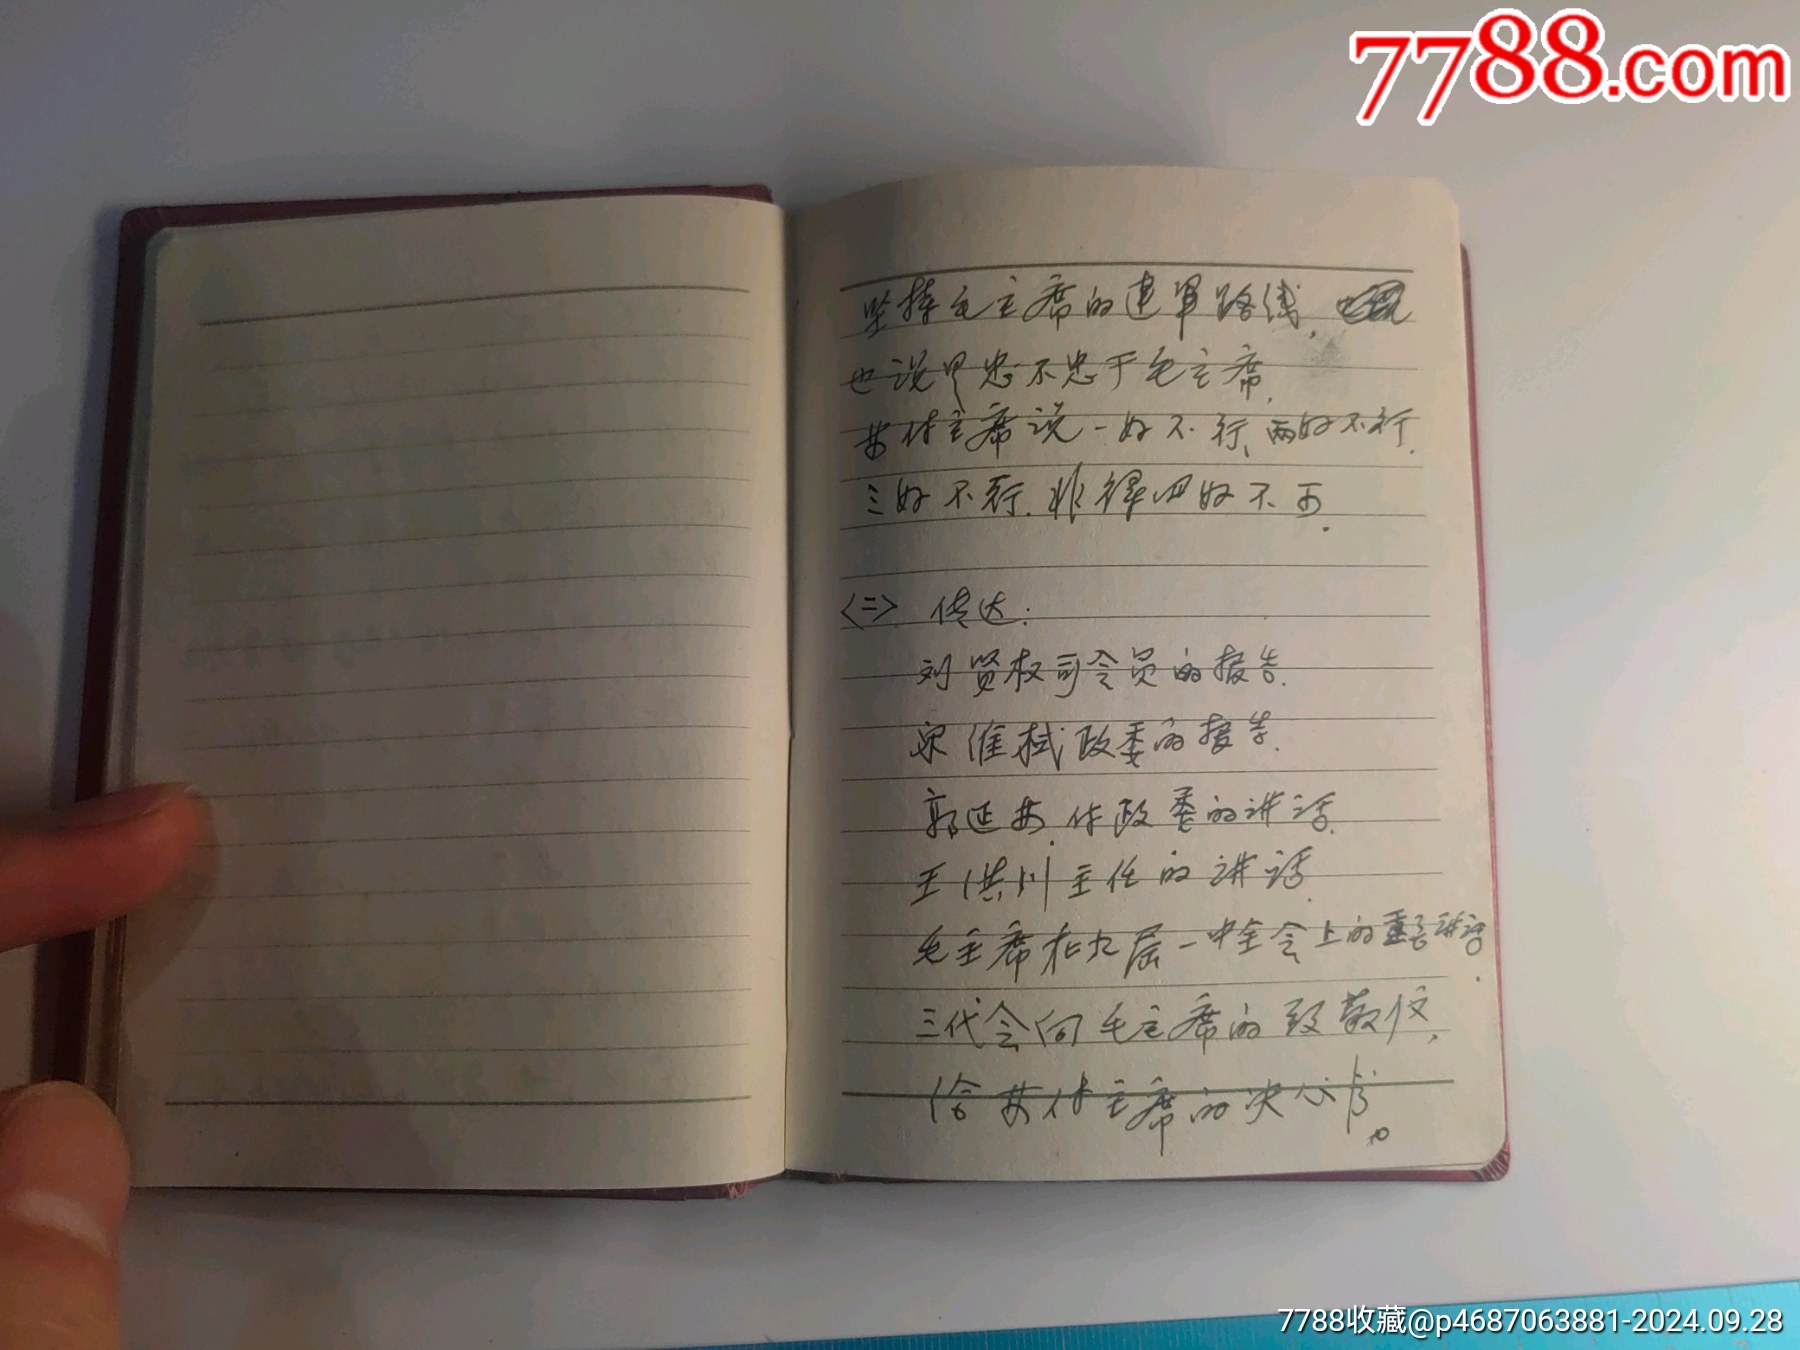 7788.com
坚持毛主席的建军路线,
也说 忠不忠于毛主席,
林付主席说一好不行,两好不行.
三好不行.非得四好不可.
<二> 传达:
刘贤权司令员的报告.
宋维栻政委的报告.
郭延林付政委的讲话.
王洪川主任的讲话.
毛主席在九届一中全会上的重要讲话.
三代会向毛主席的致敬信,
给林付主席的决心书。
7788收藏@p4687063881-2024.09.28